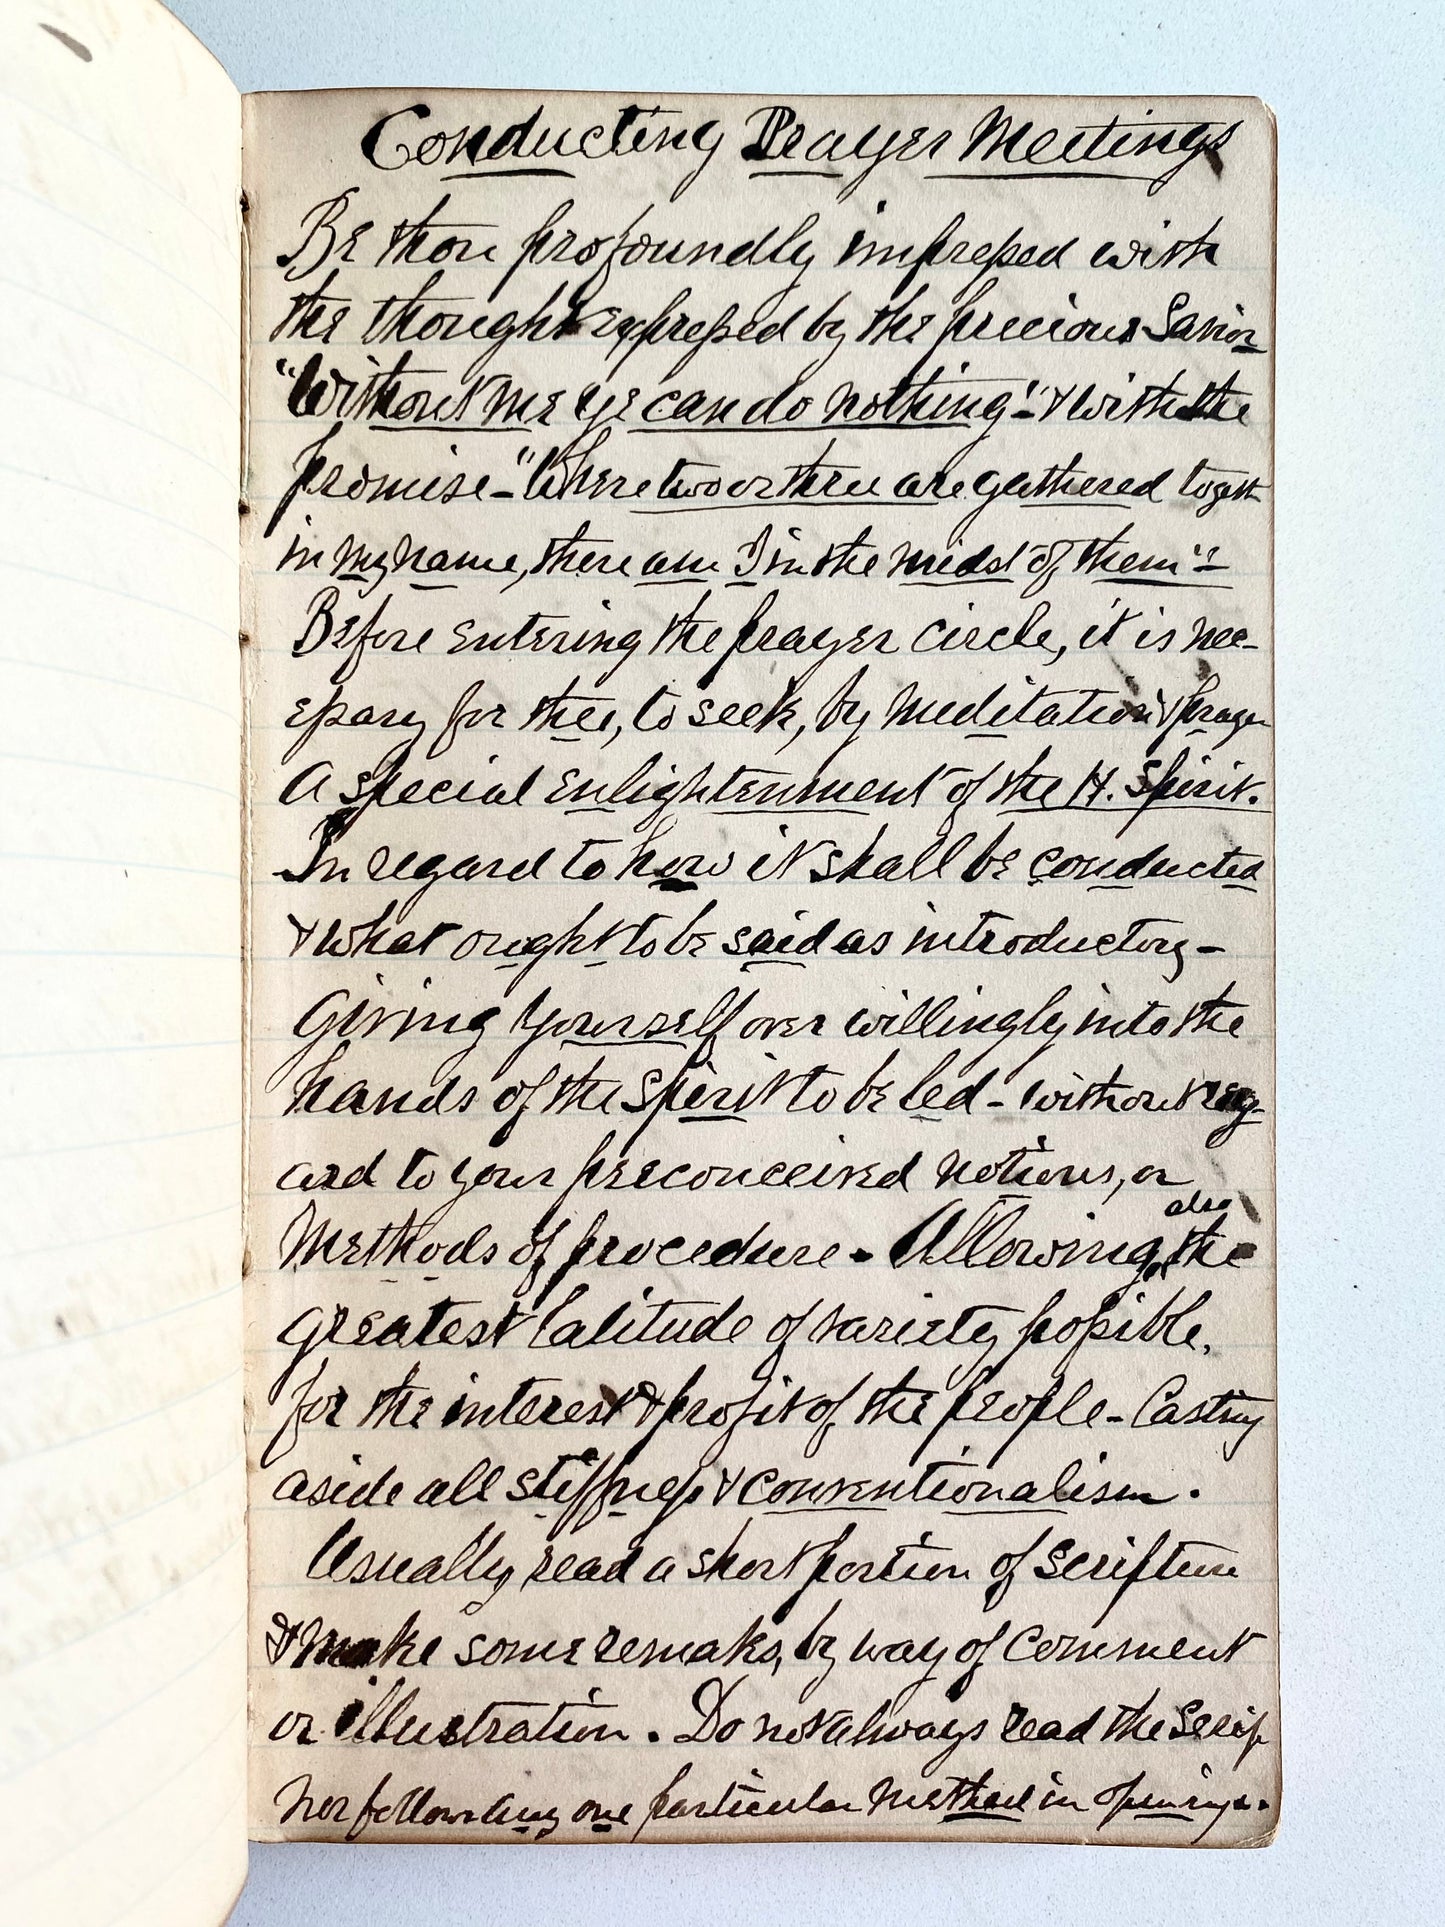 Conducting Prayer Meetings
Be thou profoundly impressed with
the thought expressed by the precious Savior
"Without me ye can do nothing" & with the
promise - "Where two or three are gathered togeth
in my name, there am I in the midst of them"
Before entering the prayer circle, it is nec-
essary for thee, to seek, by meditation & prayer
a special enlightenment of the H. Spirit.
In regard to how it shall be conducted
& what ought to be said as introductory -
Giving yourself over willingly into the
hands of the Spirit to be led - without reg-
ard to your preconceived notions, or
methods of procedure - Allowing also the
greatest latitude of variety possible,
for the interest & profit of the people - Casting
aside all stiffness & conventionalism.
Usually read a short portion of Scripture
& make some remaks, by way of comment
or illustration. Do not always read the Scrip
nor follow any one particular method in openings.